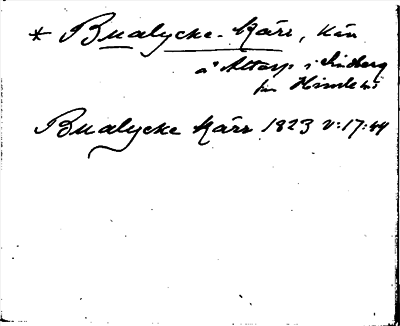 * Bualycke-Kärr, Kän
å Attarp i Lindberg
fr Himle hd
Bualycke Kärr 1823 V:17:44